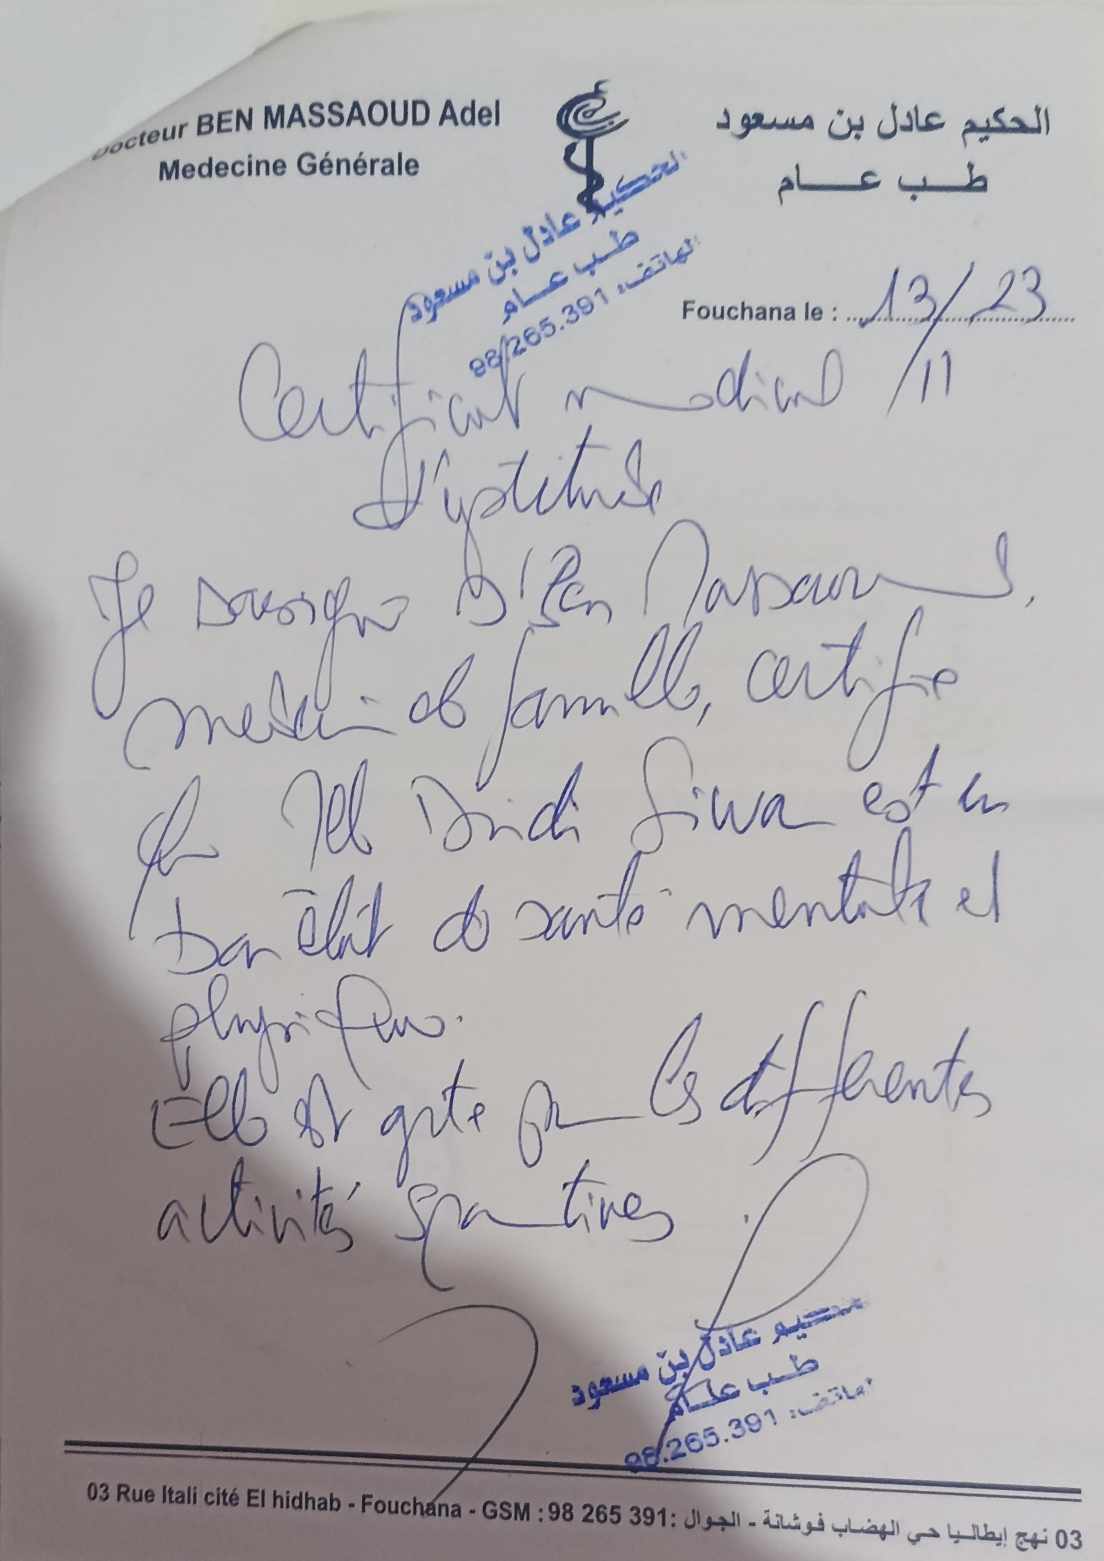 Docteur BEN MASSAOUD Adel
Medecine Générale
الحكيم عادل بن مسعود
طب عام
الحكيم عادل بن مسعود
طب عام
الهاتف: 98.265.391
Fouchana le : 13/23
/11
Certificat medical
d'aptitude
Je soussigné Dr Ben Massaoud,
medecin de famille, certifie
que Mlle Dridi Siwa est en
bon état de santé mentale et
physique.
Elle est apte pour les différentes
activités sportives.
الحكيم عادل بن مسعود
طب عام
الهاتف: 98.265.391
03 Rue Itali cité El hidhab - Fouchana - GSM : 98 265 391
03 نهج إيطاليا حي الهضاب فوشانة - الجوال :